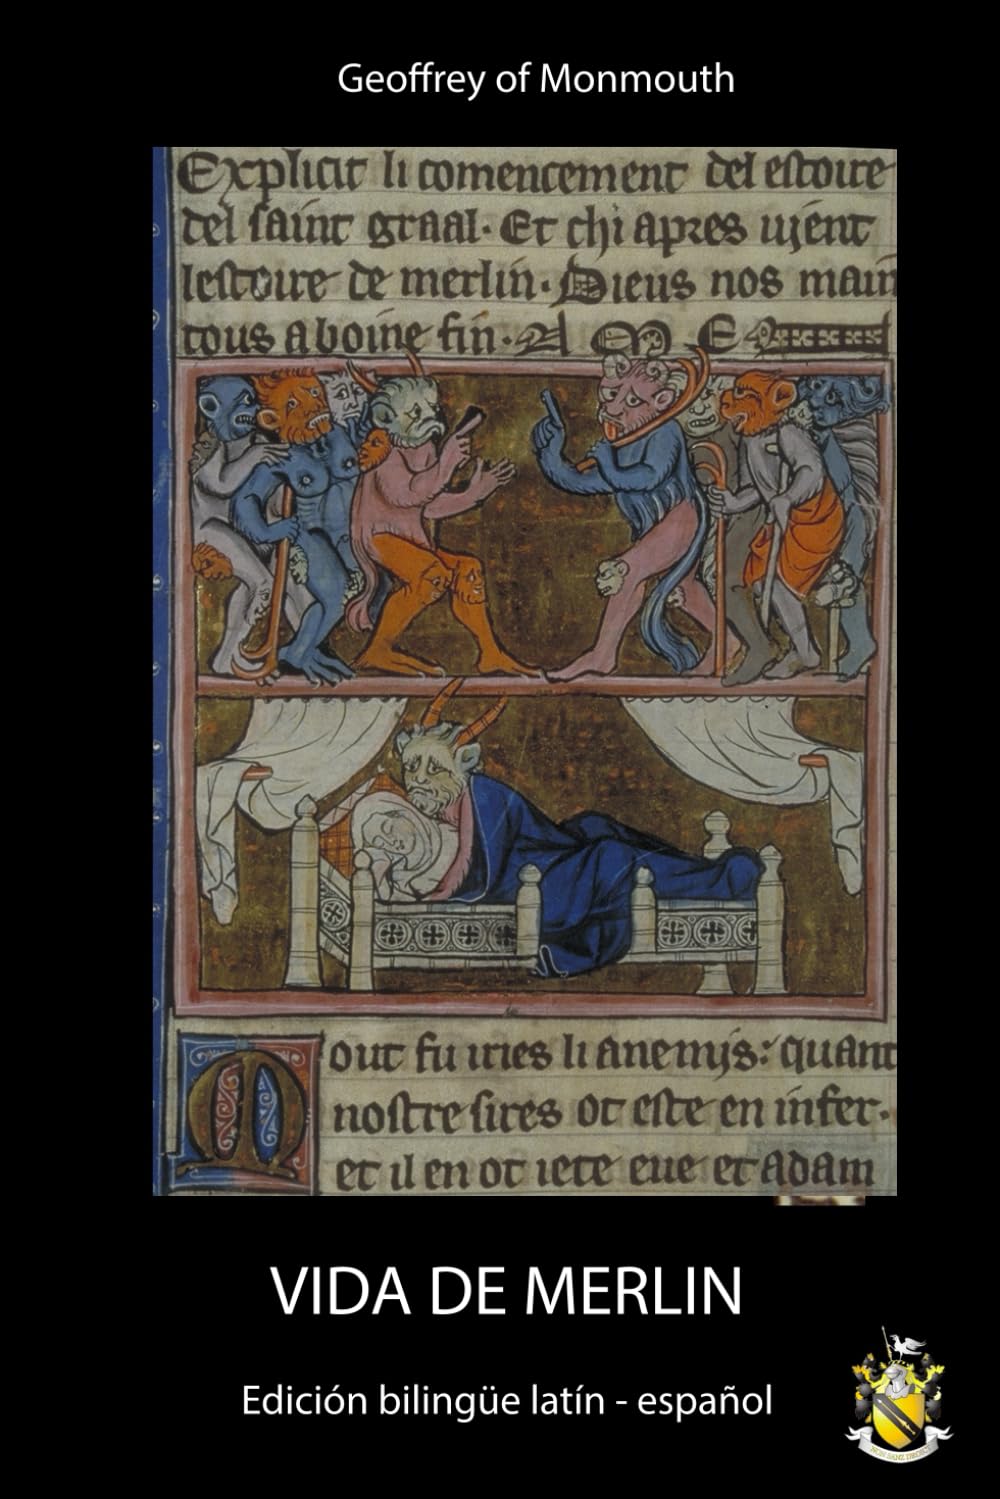 Geoffrey of Monmouth
Explicit li comencement del estoire
del saint graal. Et chi apres vient
lestoire de merlin. Dieus nos main
tous a boine fin. A M E N
Mout fu iries li anemis: quant
nostre sires ot este en infer.
et il en ot iete eue et adam
VIDA DE MERLIN
Edición bilingüe latín - español
NON SANZ DROICT